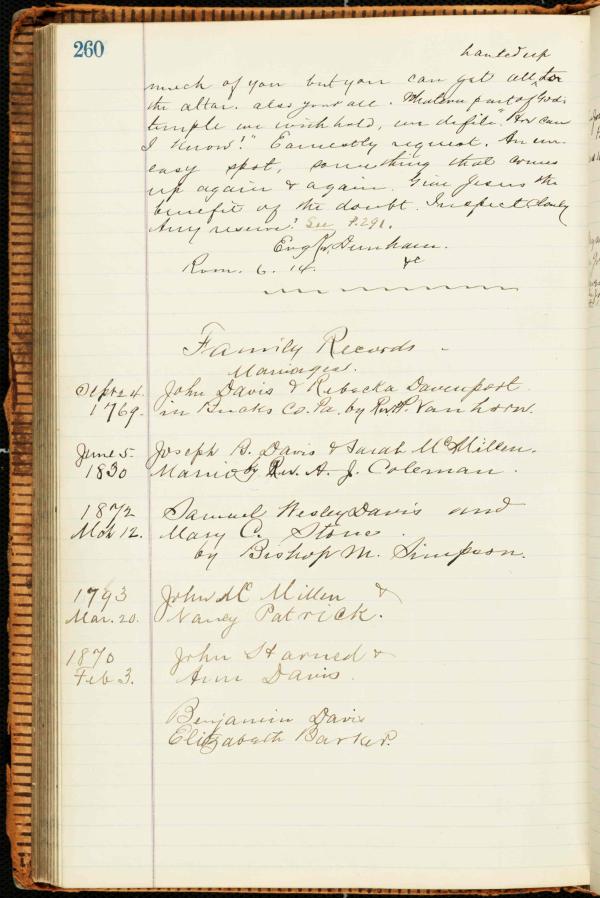 260
hauled up
much of you but you can get all, to
the altar. also your all. Whatever part of God's
temple we withhold, we defile. "How can
I know?" Earnestly request. An un-
easy spot, something that comes
up again & again. Give Jesus the
benefit of the doubt. Inspect closely
Any reserve? See P. 291.
Dunham.
Rom. 6. 14. &c
Family Records -
Marriages.
Sept 24. John Davis & Rebecka Davenport
1769. in Bucks Co. Pa. by Rev. P. Vanhorn.
June 5. Joseph B. Davis & Sarah McMillen.
1830 Married by Rev. A. J. Coleman.
1872 Samuel Wesley Davis and
Mch 12. Mary C. Stone.
by Bishop M. Simpson.
1793 John McMillen &
Mar. 20. Nancy Patrick.
1870 John Starned &
Feb 3. Ann Davis.
Benjamin Davis
Elizabeth Barker.